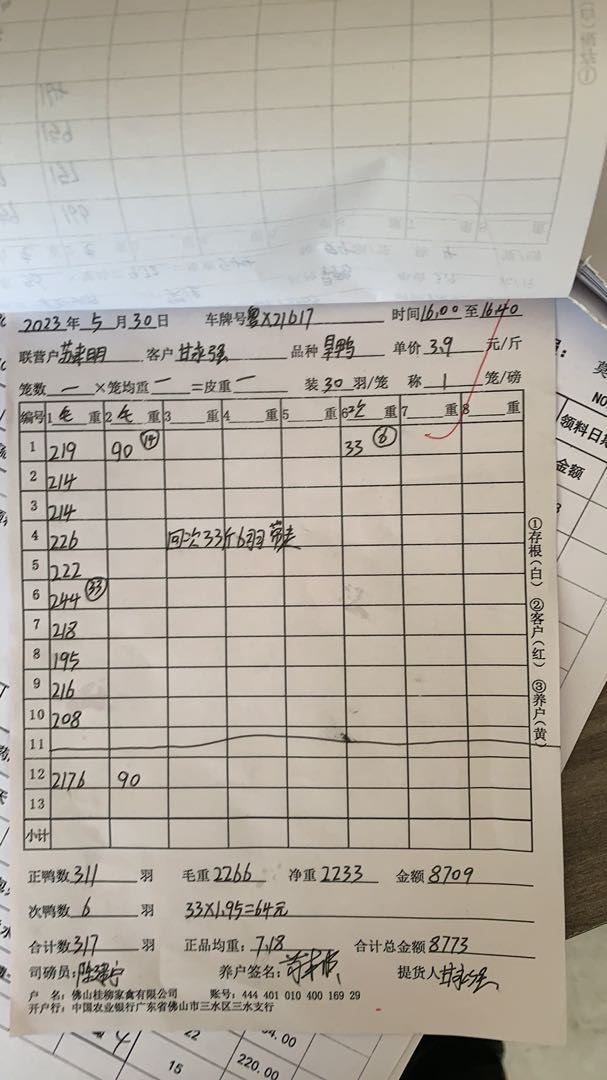 2023年5月30日 车牌号粤X21617 时间16.00至16.40
联营户 客户甘永强 品种 旱鸭 单价3.9元/斤
笼数一×笼均重一=皮重一 装30羽/笼 称1笼/磅
编号 1毛重 2毛重 3重 4重 5重 6次重 7重 8重
1 219 90 ⑭ 33 ⑥
2 214
3 214
4 226 回次33斤6羽带走
5 222
6 244 ㉝
7 218
8 195
9 216
10 208
11
12 2176 90
13
小计
正鸭数311羽 毛重2266 净重2233 金额8709
次鸭数6羽 33×1.95=64元
合计数317羽 正品均重:7.18 合计总金额8773
司磅员: 养户签名: 提货人甘永强
户 名:佛山桂柳家禽有限公司 账号:444 401 010 400 169 29
开户行:中国农业银行广东省佛山市三水区三水支行
①存根(白) ②客户(红) ③养户(黄)
NO
领料日期
金额
22
15 220.00